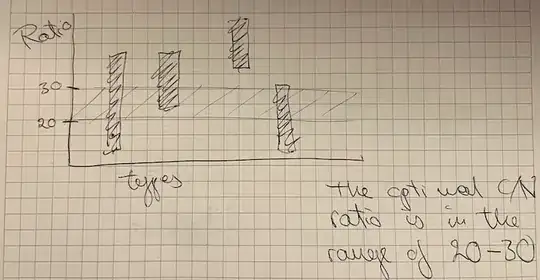 Ratio
30
20
types
The optimal C/N
ratio is in the
range of 20-30